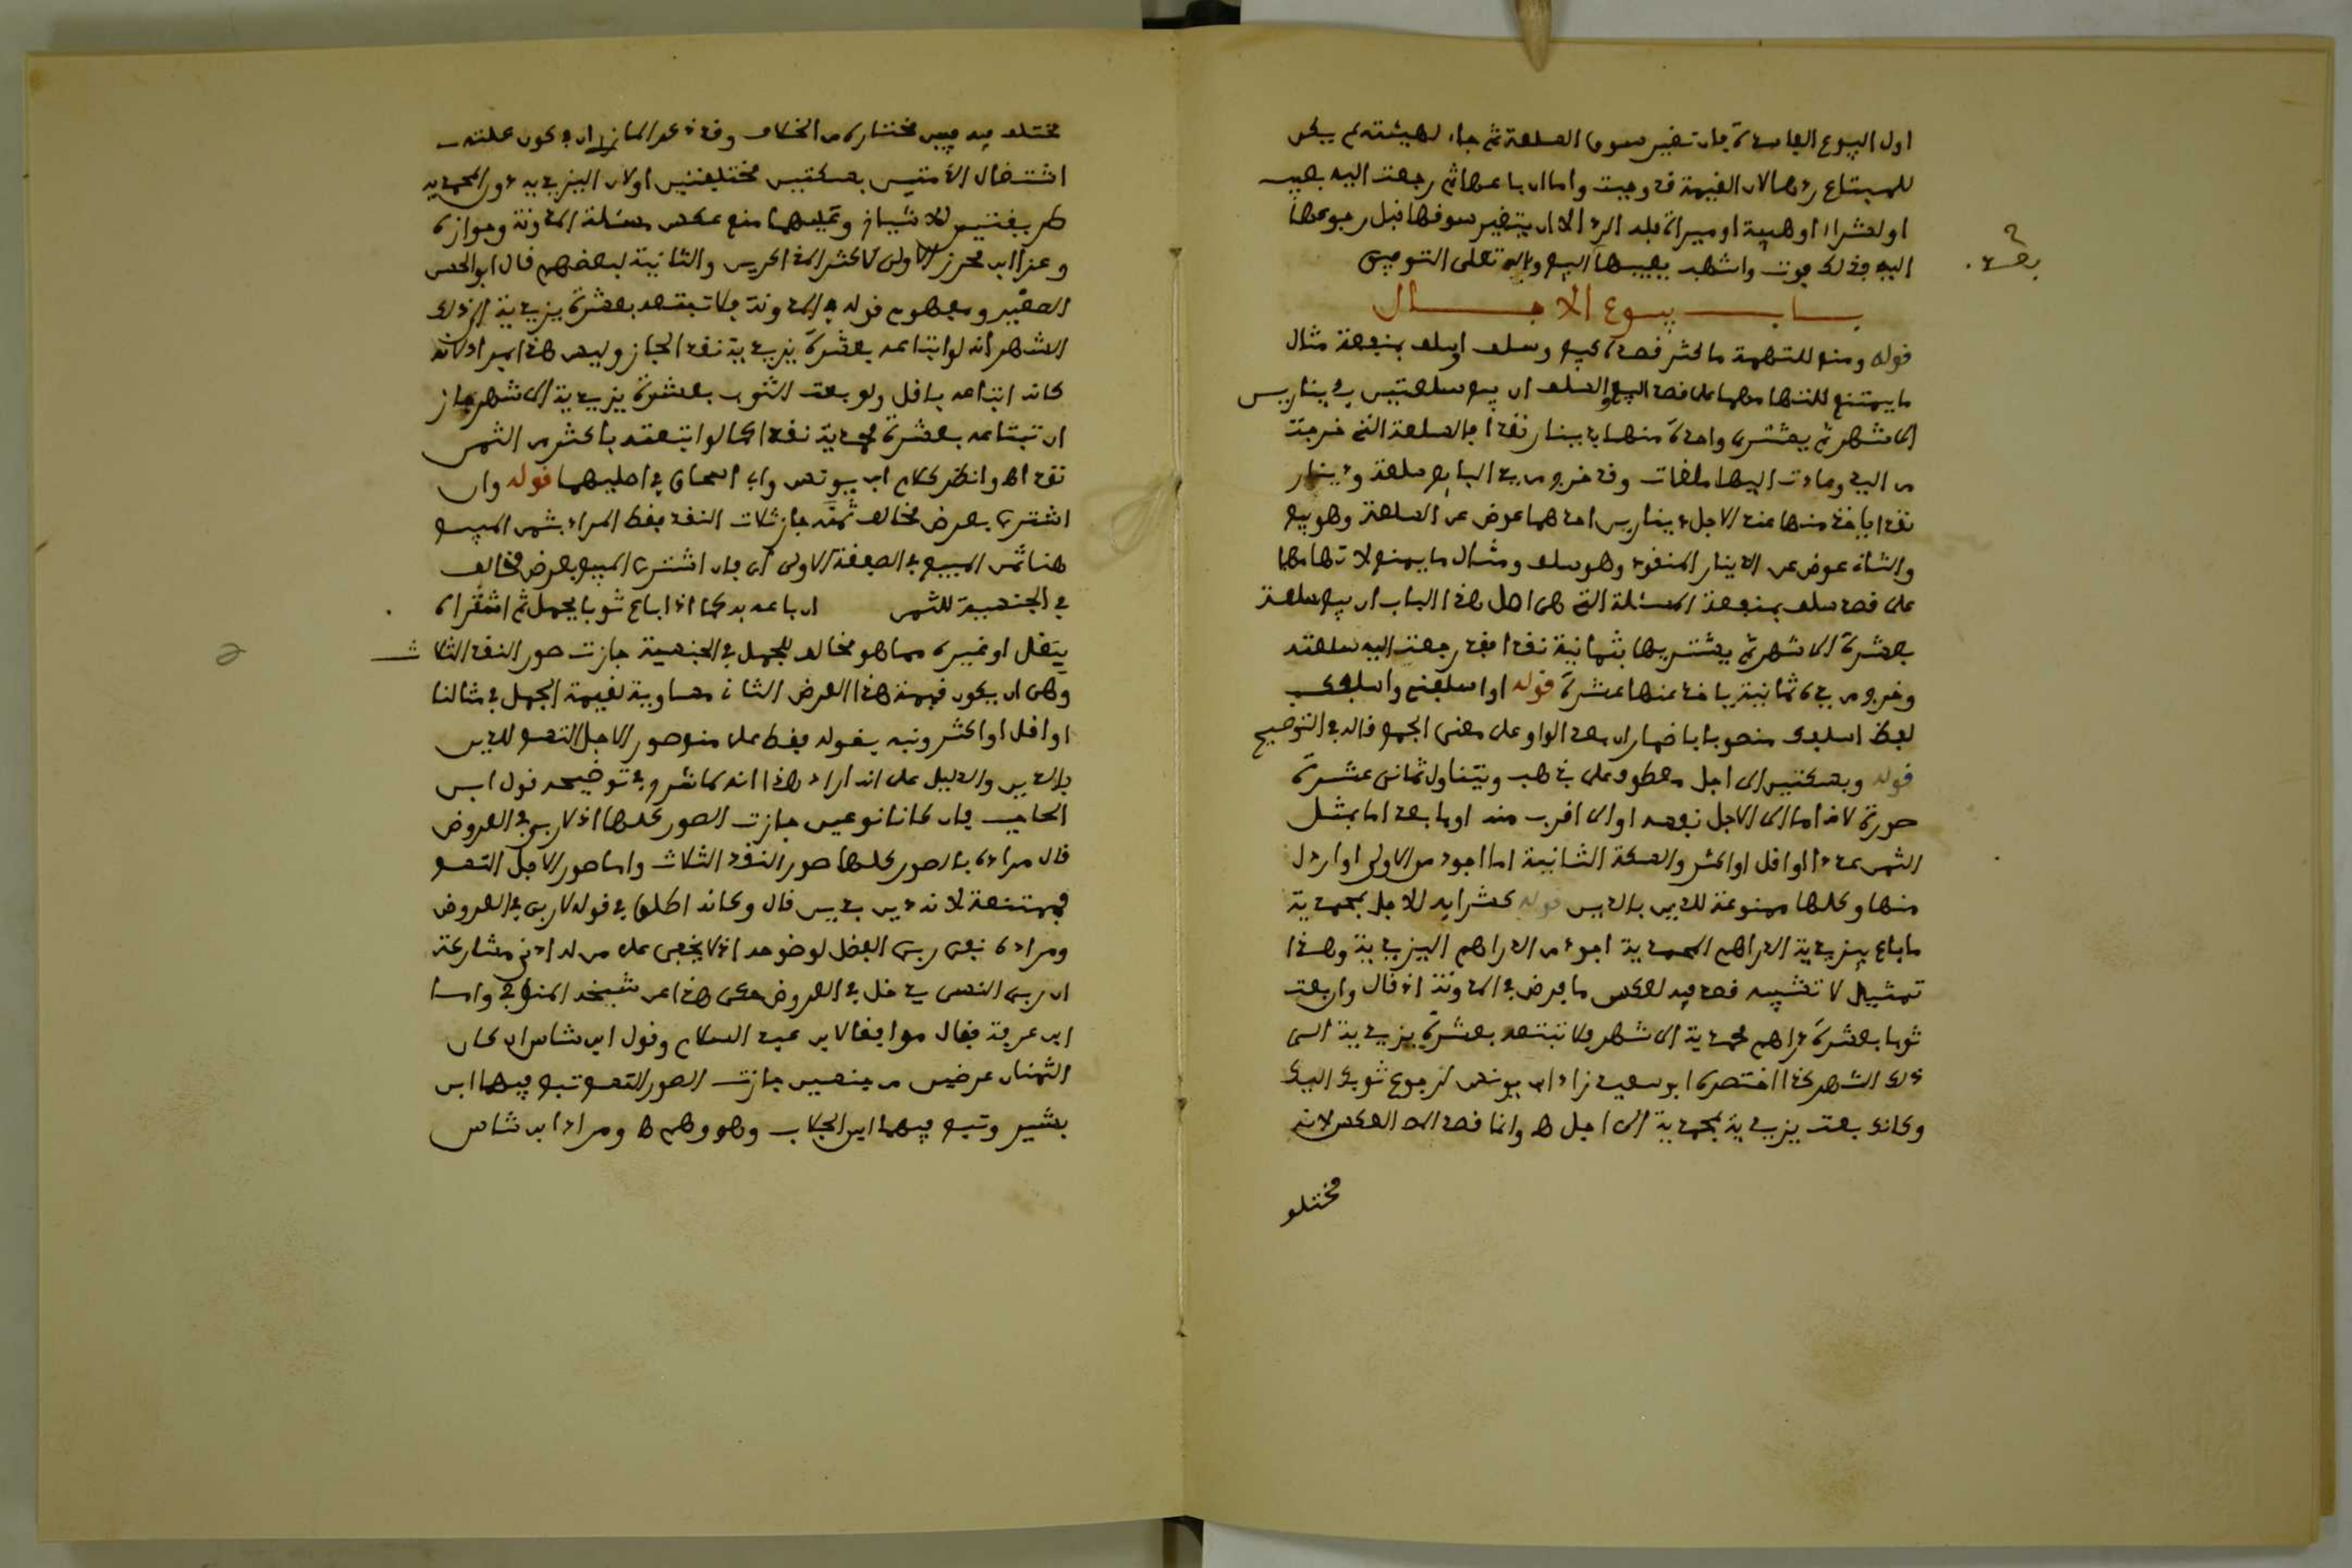 اول البيوع الفاسدة فان تغير سوق السلعة ثم جاء لهيئته لم يكن
للمبتاع ردها لان القيمة قد وجبت واما ان باعها ثم رجعت اليه بعيب
او بشراء او هبة او ميراث فله الرد الا ان يتغير سوقها قبل رجوعها
اليه فذلك فوت واشهب يفيتها البيع وبالله تعلى التوفيق
باب بيوع الاجال
قوله ومنع للتهمة ما كثر قصده كبيع وسلف وسلف بمنفعة مثال
ما يمتنع للتهامهما على قصد البيع والسلف ان يبيع سلعتين بدينارين
الى شهر ثم يشترى واحدة منهما بدينار نقدا فالسلعة التى خرجت
من اليد وعادت اليها ملغات وقد خرج من يد البايع سلعة ودينار
نقدا ياخذ منها عند الاجل دينارين احدهما عوض عن السلعة وهو بيع
والثانى عوض عن الدينار المنقود وهو سلف ومثال ما يمنع لاتهامهما
على قصد سلف بمنفعة المسئلة التى هى اصل هذا الباب ان يبيع سلعة
بعشرة الى شهر ثم يشتريها بثمانية نقدا فقد رجعت اليه سلعته
وخرج من يده ثمانية ياخذ عنها عشرة قوله او اسلفنى واسلفك
لفظ اسلفك منصوبا باضمار ان بعد الواو على معنى الجمع قاله فى التوضيح
قوله وبسكتين الى اجل معطوف على ذهب ويتناول ثمانى عشرة
صورة لانه اما الى الاجل نفسه او الى اقرب منه او ابعد اما بمثل
الثمن عددا او اقل او اكثر والسكة الثانية اما اجود من الاولى او اردل
منها وكلها ممنوعة للدين بالدين قوله كشرايه للاجل بمحمدية
ما باع بيزيدية الدراهم المحمدية اجود من الدراهم اليزيدية وهذا
تمثيل لا تشبيه قصد فيه لعكس ما فرض فى المدونة اذ قال وان بعت
ثوبا بعشرة دراهم محمدية الى شهر فلا تبتعه بعشرة يزيدية الى
ذلك الشهر كذا اختصره ابو سعيد زاد ابن يونس لرجوع ثوبك اليك
وكانك بعت يزيدية بمحمدية الى اجل ه وانما قصد الى العكس لانه
مختلف
مختلف فيه فبين مختاره من الخلاف وقد ذكر المازرى ان فى كون علته
اشتغال الذمتين بسكتين مختلفتين او لان اليزيدية دون المحمدية
طريقتين للاشياخ وعليهما منع عكس مسئلة المدونة وجوازه
وعزا ابن محرز الاولى لاكثر المذاكرين والثانية لبعضهم قال ابو الحسن
الصغير ومفهوم قوله فى المدونة فلا تبتعه بعشرة يزيدية الى ذلك
الشهر انه لو ابتاعه بعشرة يزيدية نقدا لجاز وليس هذا بمراد لانه
كانه ابتاعه باقل ولو بعت الثوب بعشرة يزيدية الى شهر جاز
ان تبتاعه بعشرة محمدية نقدا كما لو ابتعته باكثر من الثمن
نقدا ه وانظر كلام ابن يونس وابى اسحاق فى اصليهما قوله وان
اشترى بعرض مخالف ثمنه جازت ثلاث النقد فقط المراد بثمن المبيع
هنا ثمن المبيع فى الصفقة الاولى اى فان اشترى المبيع بعرض مخالف
فى الجنسية للثمن ان باعه به كما اذا باع ثوبا بجمل ثم اشتراه
ببغل او غيره مما هو مخالف للجمل فى الجنسية جازت صور النقد الثلاث
وهى ان يكون قيمة هذا العرض الثانى مساوية لقيمة الجمل فى مثالنا
او اقل او اكثر ونبه بقوله فقط على منع صور الاجل التسع للدين
بالدين والدليل على انه اراد هذا انه لما نقل فى توضيحه قول ابن
الحاجب فان كانا نوعين جازت الصور كلها اذ لا ربى فى العروض
قال مراده بالصور كلها صور النقد الثلاث واما صور الاجل التسع
فممتنعة لانه دين بدين قال وكانه اطلق فى قوله لا ربى فى العروض
ومراده نفى ربى الفضل لوضوحه اذ لا يخفى على من له ادنى مشاركة
ان ربى النسى يدخل فى العروض حكى هذا عن شيخه المنوفى واما
ابن عرفة فقال موافقا لابن عبد السلام وقول ابن شاس ان كان
الثمنان عرضين من جنسين جازت الصور التسع تبع فيها ابن
بشير وتبع فيهما ابن الجلاب وهو وهم ه ومراد ابن شاس